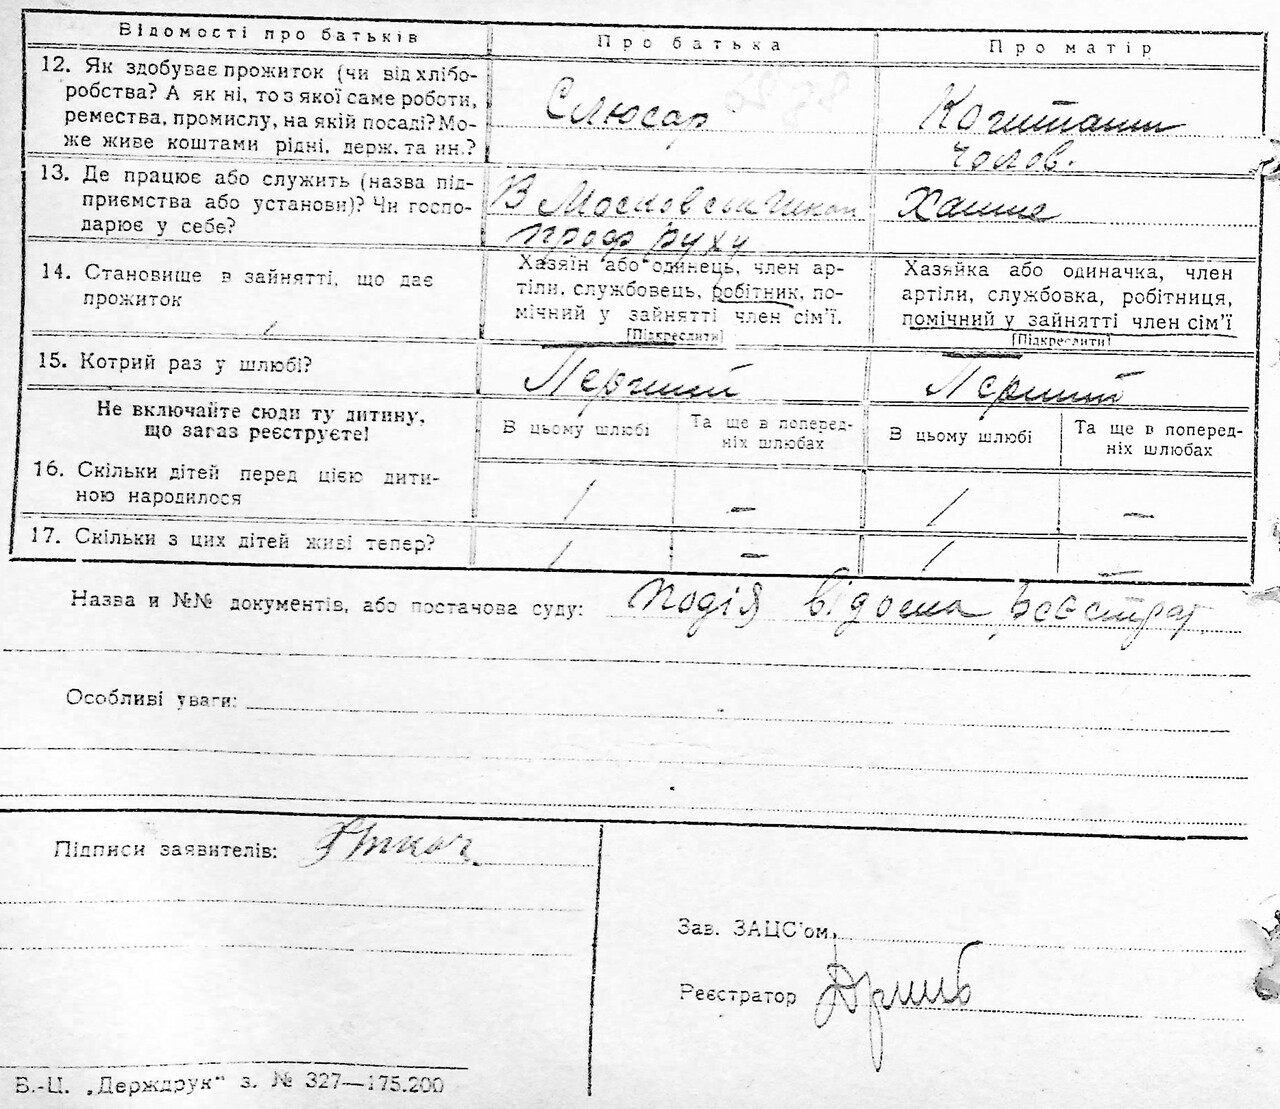 Відомості про батьків Про батька Про матір
12. Як здобуває прожиток (чи від хлібо-
робства? А як ні, то з якої саме роботи,
ремества, промислу, на якій посаді? Мо-
же живе коштами рідні, держ. та ин.?
Слюсар
Коштами
чолов.
13. Де працює або служить (назва під-
приємства або установи)? Чи госпо-
дарює у себе?
В Московськ
проф руху
14. Становище в зайнятті, що дає
прожиток
Хазяїн або одинець, член ар-
тіли, службовець, робітник, по-
мічний у зайнятті член сім'ї.
[Підкреслити]
Хазяйка або одиначка, член
артіли, службовка, робітниця,
помічний у зайнятті член сім'ї
[Підкреслити]
15. Котрий раз у шлюбі?
Перший
Перший
Не включайте сюди ту дитину,
що зараз реєструєте!
В цьому шлюбі
Та ще в поперед-
ніх шлюбах
В цьому шлюбі
Та ще в поперед-
ніх шлюбах
16. Скільки дітей перед цією дити-
ною народилося
1 – 1 –
17. Скільки з цих дітей живі тепер?
1 – 1 –
Назва и №№ документів, або постанова суду: подія відома реєстрат
Особливі уваги:
Підписи заявителів:
Зав. ЗАЦС'ом
Реєстратор
В.-Ц. „Держдрук" з. № 327—175.200